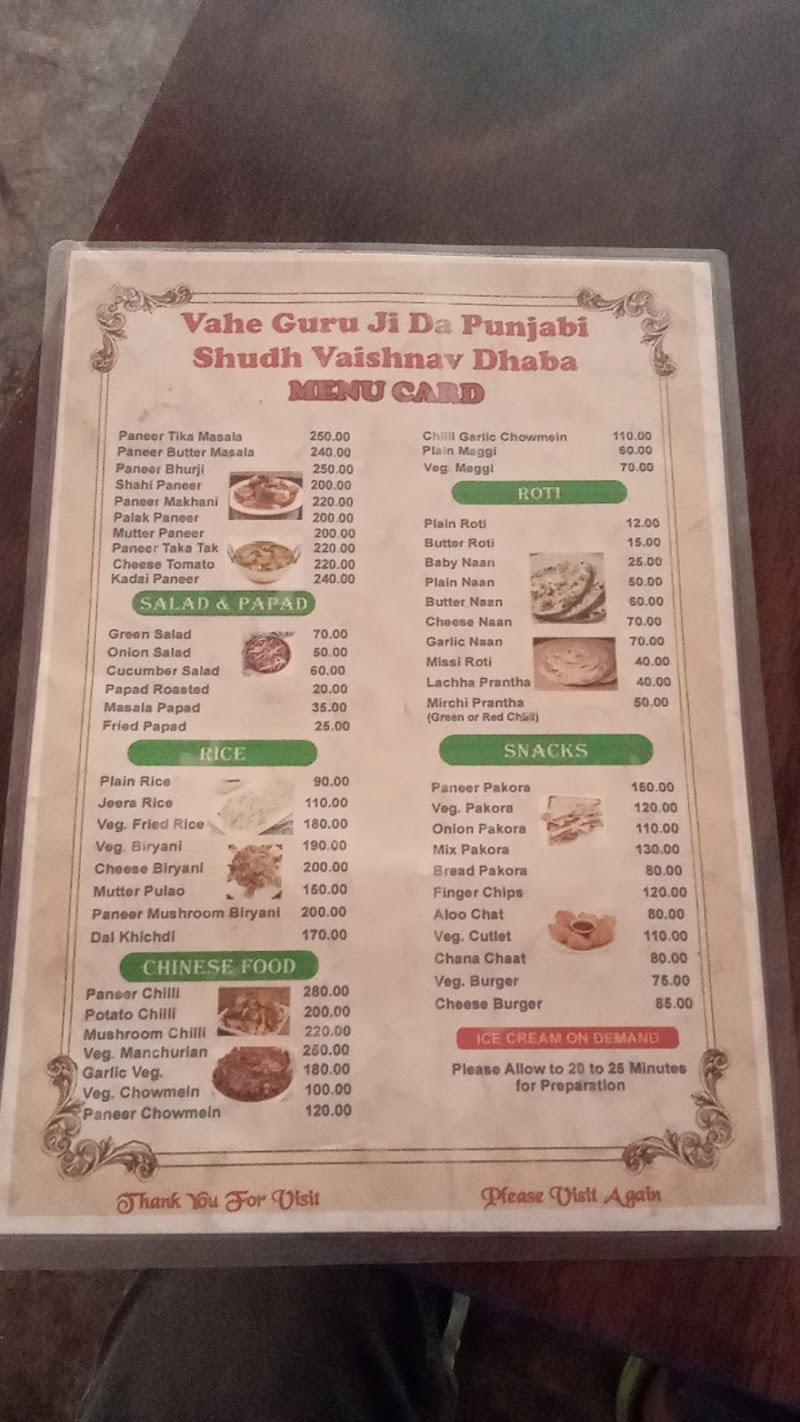 Vahe Guru Ji Da Punjabi
Shudh Vaishnav Dhaba
MENU CARD
Paneer Tika Masala 250.00
Paneer Butter Masala 240.00
Paneer Bhurji 250.00
Shahi Paneer 200.00
Paneer Makhani 220.00
Palak Paneer 200.00
Mutter Paneer 200.00
Paneer Taka Tak 220.00
Cheese Tomato 220.00
Kadai Paneer 240.00
SALAD & PAPAD
Green Salad 70.00
Onion Salad 50.00
Cucumber Salad 60.00
Papad Roasted 20.00
Masala Papad 35.00
Fried Papad 25.00
RICE
Plain Rice 90.00
Jeera Rice 110.00
Veg. Fried Rice 180.00
Veg. Biryani 190.00
Cheese Biryani 200.00
Mutter Pulao 150.00
Paneer Mushroom Biryani 200.00
Dal Khichdi 170.00
CHINESE FOOD
Paneer Chilli 280.00
Potato Chilli 200.00
Mushroom Chilli 220.00
Veg. Manchurian 250.00
Garlic Veg. 180.00
Veg. Chowmein 100.00
Paneer Chowmein 120.00
Chilli Garlic Chowmein 110.00
Plain Maggi 60.00
Veg. Maggi 70.00
ROTI
Plain Roti 12.00
Butter Roti 15.00
Baby Naan 25.00
Plain Naan 50.00
Butter Naan 60.00
Cheese Naan 70.00
Garlic Naan 70.00
Missi Roti 40.00
Lachha Prantha 40.00
Mirchi Prantha 50.00
(Green or Red Chilli)
SNACKS
Paneer Pakora 150.00
Veg. Pakora 120.00
Onion Pakora 110.00
Mix Pakora 130.00
Bread Pakora 80.00
Finger Chips 120.00
Aloo Chat 80.00
Veg. Cutlet 110.00
Chana Chaat 80.00
Veg. Burger 75.00
Cheese Burger 85.00
ICE CREAM ON DEMAND
Please Allow to 20 to 25 Minutes
for Preparation
Thank You For Visit
Please Visit Again